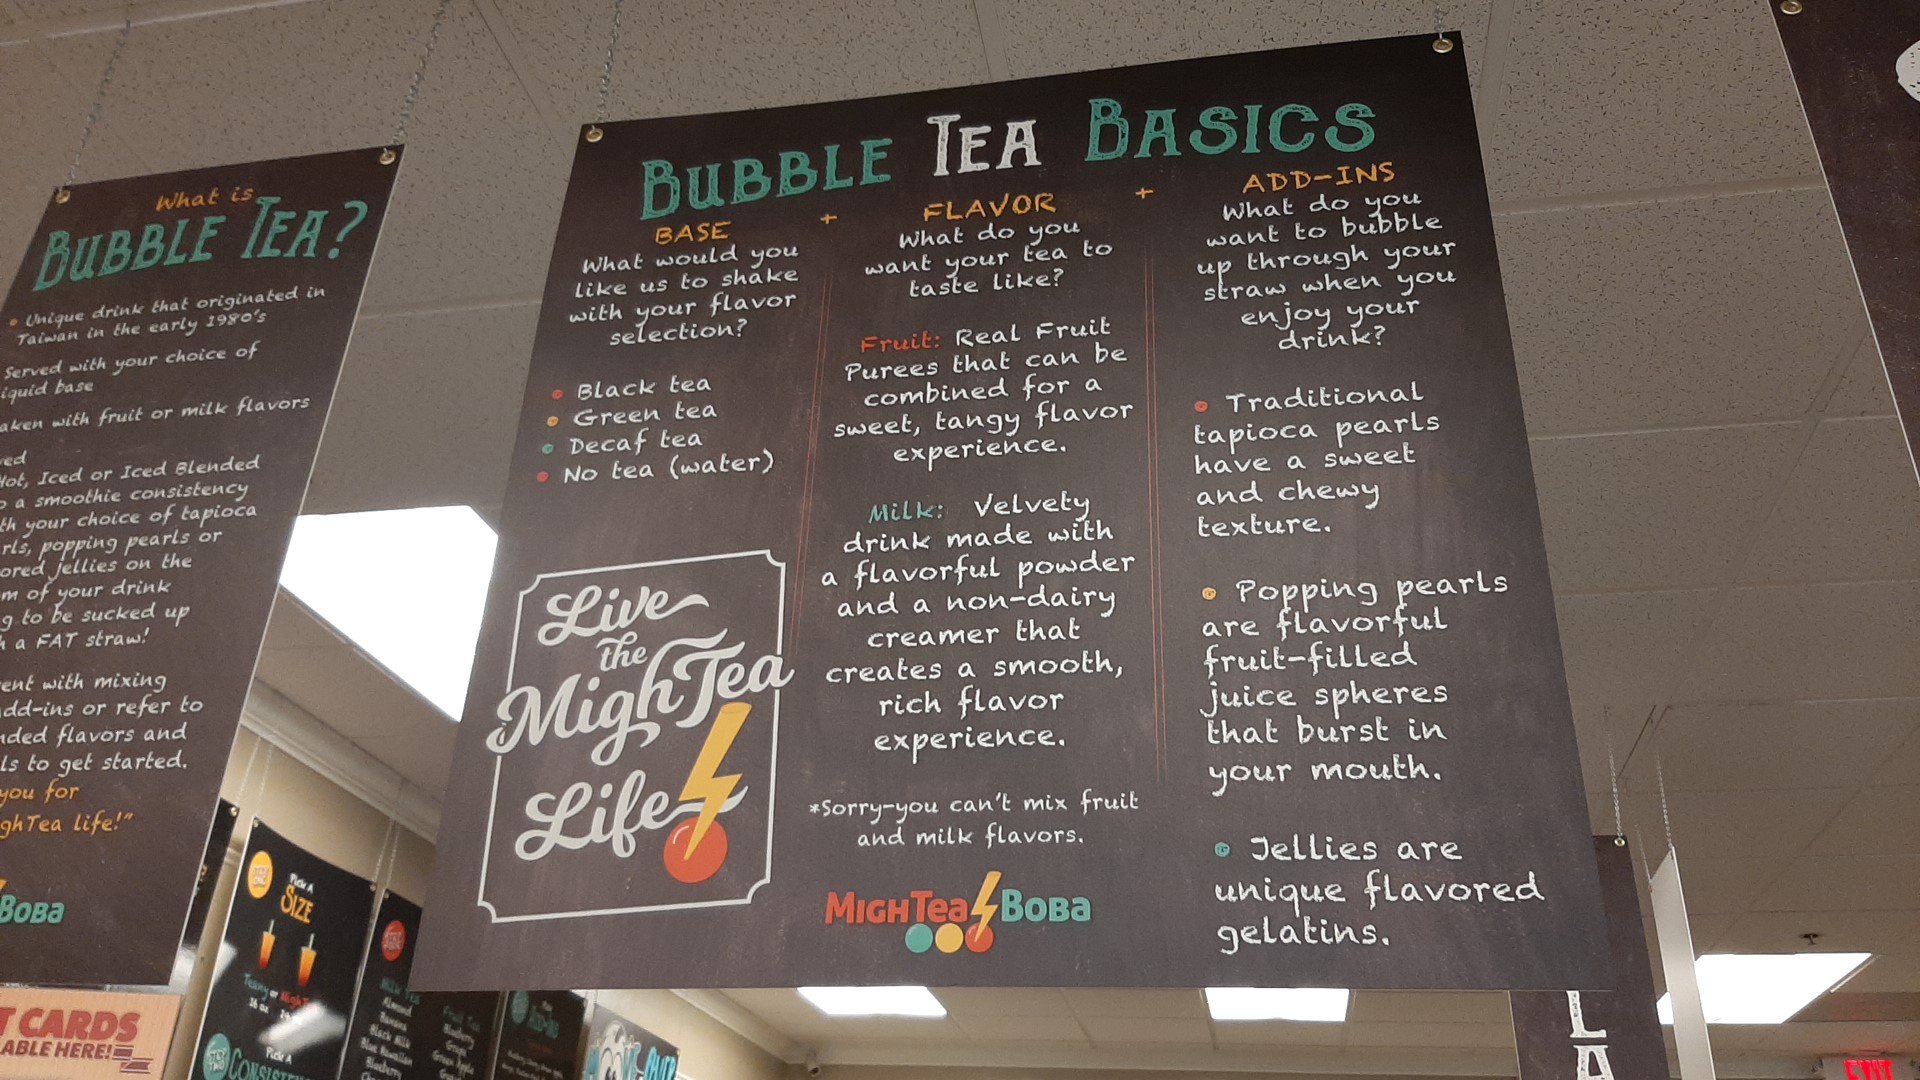 What is
BUBBLE TEA?
Unique drink that originated in
Taiwan in the early 1980's
Served with your choice of
base
with fruit or milk flavors
Hot, Iced or Iced Blended
a smoothie consistency
your choice of tapioca
popping pearls or
jellies on the
of your drink
to be sucked up
a FAT straw!
with mixing
add-ins or refer to
flavors and
to get started.
you for
life!"
BOBA
BUBBLE TEA BASICS
BASE + FLAVOR + ADD-INS
What would you
like us to shake
with your flavor
selection?
Black tea
Green tea
Decaf tea
No tea (water)
Live
the
MighTea
Life
What do you
want your tea to
taste like?
Fruit: Real Fruit
Purees that can be
combined for a
sweet, tangy flavor
experience.
Milk: Velvety
drink made with
a flavorful powder
and a non-dairy
creamer that
creates a smooth,
rich flavor
experience.
*Sorry-you can't mix fruit
and milk flavors.
MIGHTea BOBA
What do you
want to bubble
up through your
straw when you
enjoy your
drink?
Traditional
tapioca pearls
have a sweet
and chewy
texture.
Popping pearls
are flavorful
fruit-filled
juice spheres
that burst in
your mouth.
Jellies are
unique flavored
gelatins.
CARDS
HERE!
Pick A
SIZE
Teany or
16 oz
Pick A
Milk Tea
Almond
Banana
Black Milk
Blue Hawaiian
Blueberry
Fruit Tea
Blueberry
Grape
Green Apple
ADD-INS
L
A
EXIT